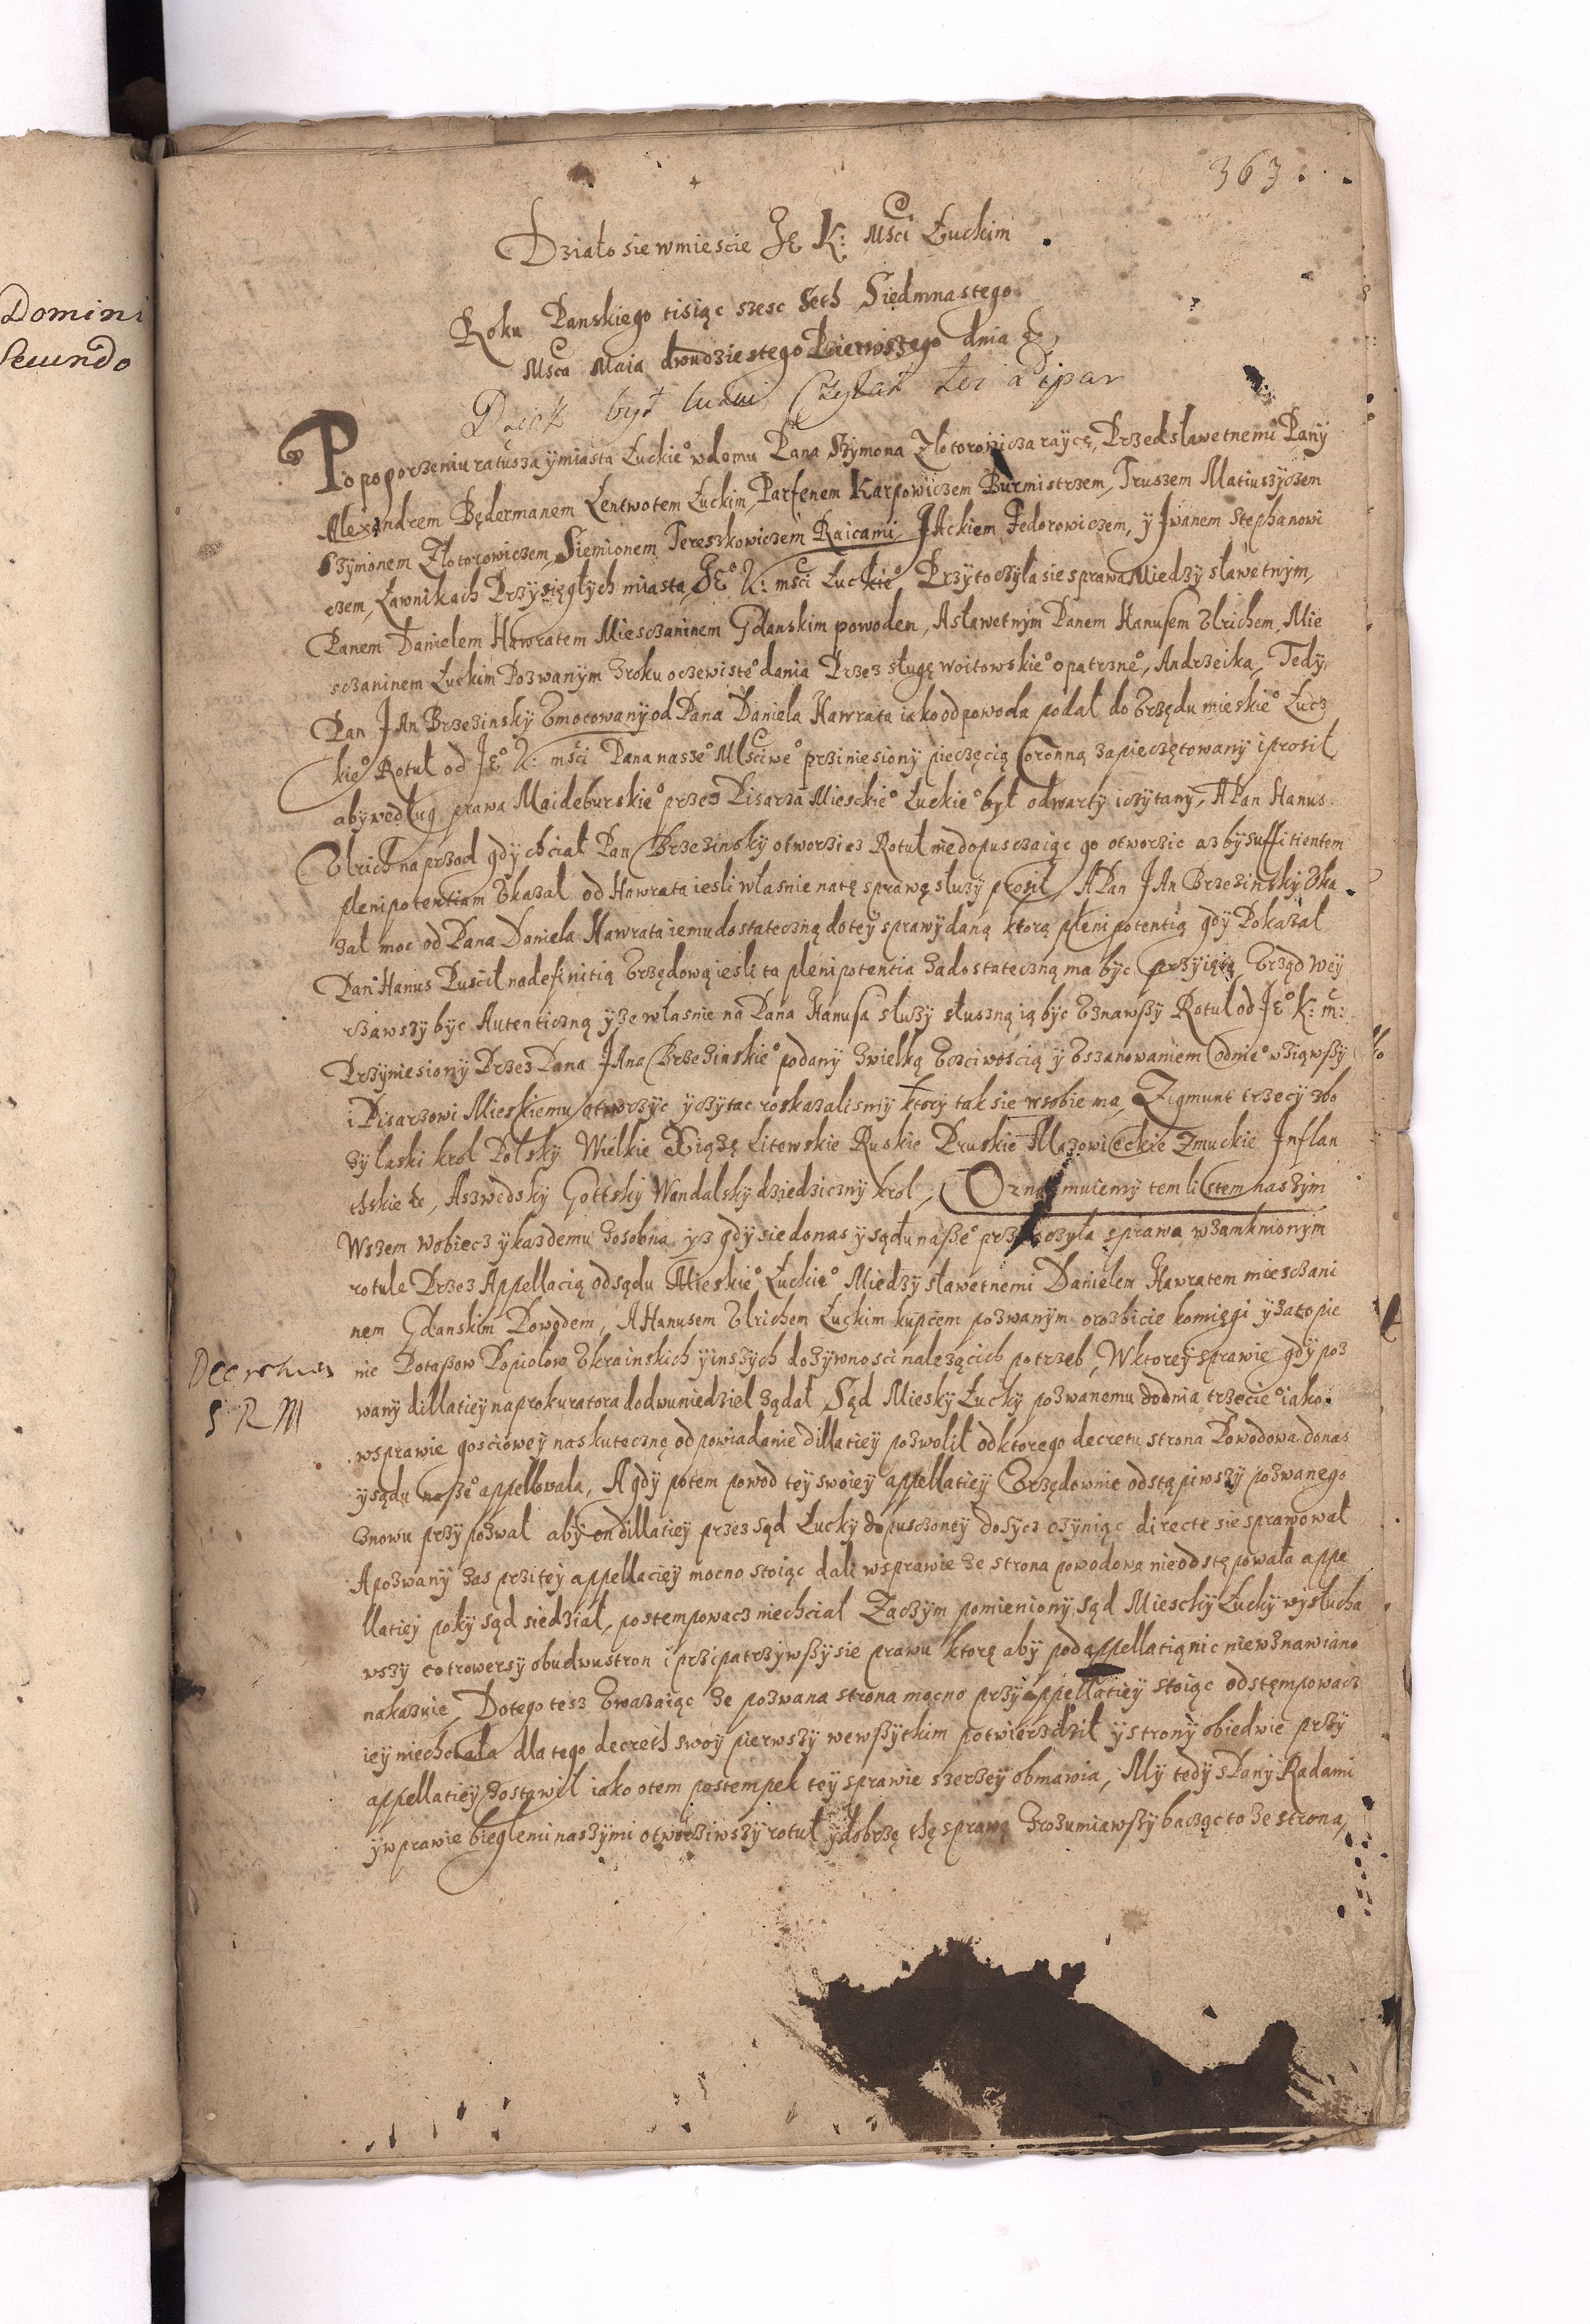 363
Domini
Secundo
Działo sie w miescie JE K: Msci Łuckim
Roku Panskiego tisiąc szesc Seth Siedmnastego
Msca Maia dwudziestego Pierwszego dnia
był
Po pogorzeniu ratusza y miasta Łuckie° w domu Pana Szymona Złotorowicza raycę, Przed sławetnemi Pany
Alexandrem Będermanem Lentwotem Łuckim, Parfenem Karpowiczem Burmistrzem, Truszem Matiuszyczem
Szymonem Złotorowiczem, Siemionem Tereszkowiczem Raicami, JAckiem Fedorowiczem, y Jwanem Stephanowi
czem, Ławnikach Przysięgłych miasta JE° K: msci Łuckie° Przytoczyła sie sprawa Miedzy sławetnym,
Panem Danielem Hawratem Miesczaninem Gdanskim powodem, A sławetnym Panem Hanusem Ulrichem, Mie
sczaninem Łuckim Pozwanym z roku oczewiste° dania Przez sługę woitowskie° opatrzne°, Andrzeika, Tedy,
Pan JAn Brzezinsky Umocowany od Pana Daniela Hawrata iako od powoda podał do Urzędu mieskie° Łucz
kie° Rotuł od JE° K: msci Pana nasze° Msciwe° prziniesiony pieczęcią Coronną zapieczętowany i prosił
aby według prawa Maideburskie° przez Pisarza Miesckie° Łuckie° był odwarty i czytany, A Pan Hanus
Ulrich na przod gdy chciał Pan Brzezinsky otworzicz Rotuł niedopusczaiąc go otworzic az by sufficientem
plenipotentiam Ukazal od Hawrata iesli własnie na tę sprawę słuzy prosił, A Pan JAn Brzezinsky Uka
zał moc od Pana Daniela Hawrata iemu dostateczną do tey sprawy daną ktorą plenipotentią gdy Pokazał
Pan Hanus Puscił na definitią Urzędową iesli ta plenipotentia za dostateczną ma byc przyiętą, Urząd wey
rzawszy byc Autenticzną y ze własnie na Pana Hanusa słuzy słuszną ią byc Uznawszy Rotuł od JE° K: m:
Przyniesiony Przez Pana JAna Brzezinskie° podany z wielką Uczciwoscią y Uszanowaniem od nie° wziąwszy
i Pisarzowi Mieskiemu otworzyc y czytac roskazalismy ktory tak sie w sobie ma, Zigmunt trzecy z bo
zy laski krol Polsky Wielkie Xiązę Litewskie Ruskie Pruskie Mazowieckie Zmuckie Inflan
thskie &c, A szwedsky Gottsky Wandalsky dziedziczny krol, Oznaymuiemy tem listem naszym
Wszem wobiecz y kazdemu zosobna yz gdy sie do nas y sądu nasze° przytoczyła sprawa w zamknionym
rotule Przez Appellacią od sądu Mieskie° Łuckie° Miedzy sławetnemi Danielem Hawratem miesczani
nem Gdanskim Powodem, A Hanusem Ulrichem Łuckim kupcem pozwanym o rozbicie komięgi y zatopie
nie Potaszow Popiołow Ukrainskich y inszych do zywnosci nalezących potrzeb, W ktorey sprawie gdy poz
wany dillatiey na prokuratora do dwu niedziel ządał Sąd Miesky Łucky pozwanemu do dnia trzecie° iako
w sprawie gosciowey na skutecznę odpowiadanie dillatiey pozwolił od ktorego decretu strona Powodowa do nas
y sądu nasze° appellowała, A gdy potem powod tey swoiey appellatiey Urzędownie odstąpiwszy pozwanego
znowu przypozwał aby on dillatiey przez sąd Łucky dopusczoney dosycz czyniąc directe sie sprawował
A pozwany zas przi tey appellaciey mocno stoiąc dali w sprawie ze strona powodowa nieodstępowała appe
llatiey poky sąd siedział, postempowacz niechciał Zaczym pomieniony sąd Miescky Łucky wysłucha
wszy cotrowersy obudwu stron i przipatrzywszy sie prawu ktorę aby pod appellatią nic niewznawiano
nakazuie, Do tego tesz Uwazaiąc ze pozwana strona mocno przy appellatiey stoiąc odstępowacz
iey niechciała dla tego decreth swoy pierwszy we wszytkim potwierdził y strony obiedwie przy
appellatiey zostawił iako o tem postempek tey sprawie szerzey obmawia, My tedy s Pany Radami
y w prawie biegłemi naszymi otworziwszy rotuł y dobrzę thę sprawę zrozumiawszy bacząc to ze strona,
Decretum
S R M